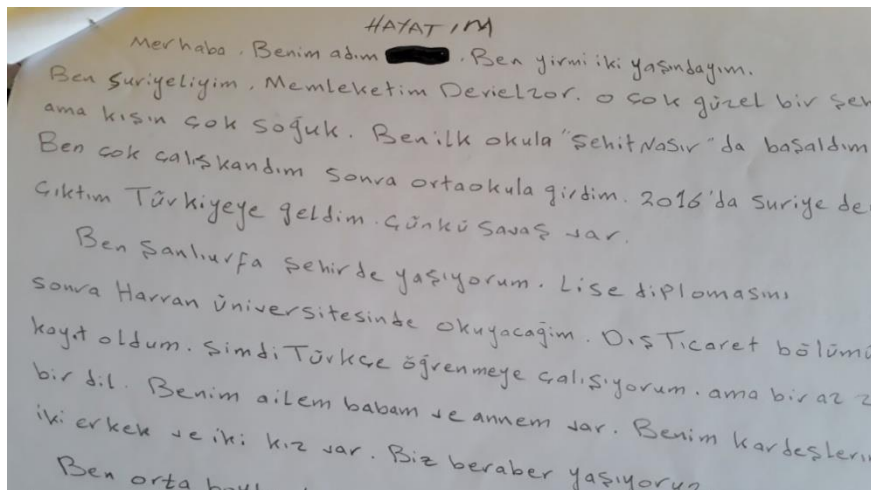 HAYATIM
Merhaba. Benim adım . Ben yirmi iki yaşındayım.
Ben Suriyeliyim. Memleketim Derielzor. O çok güzel bir
ama kışın çok soğuk. Ben ilk okula "Şehit Nasır" da başaldım
Ben çok çalışkandım sonra ortaokula girdim. 2016'da Suriye de
çıktım Türkiyeye geldim. Çünkü savaş var.
Ben Şanlıurfa şehirde yaşıyorum. Lise diplomasını
sonra Harran üniversitesinde okuyacağim. Dış Ticaret bölümü
kayıt oldum. Şimdi Türkçe öğrenmeye çalışıyorum. ama bir az
bir dil. Benim ailem babam ve annem var. Benim kardeşleri
iki erkek ve iki kız var. Biz beraber yaşıyoruz
Ben orta